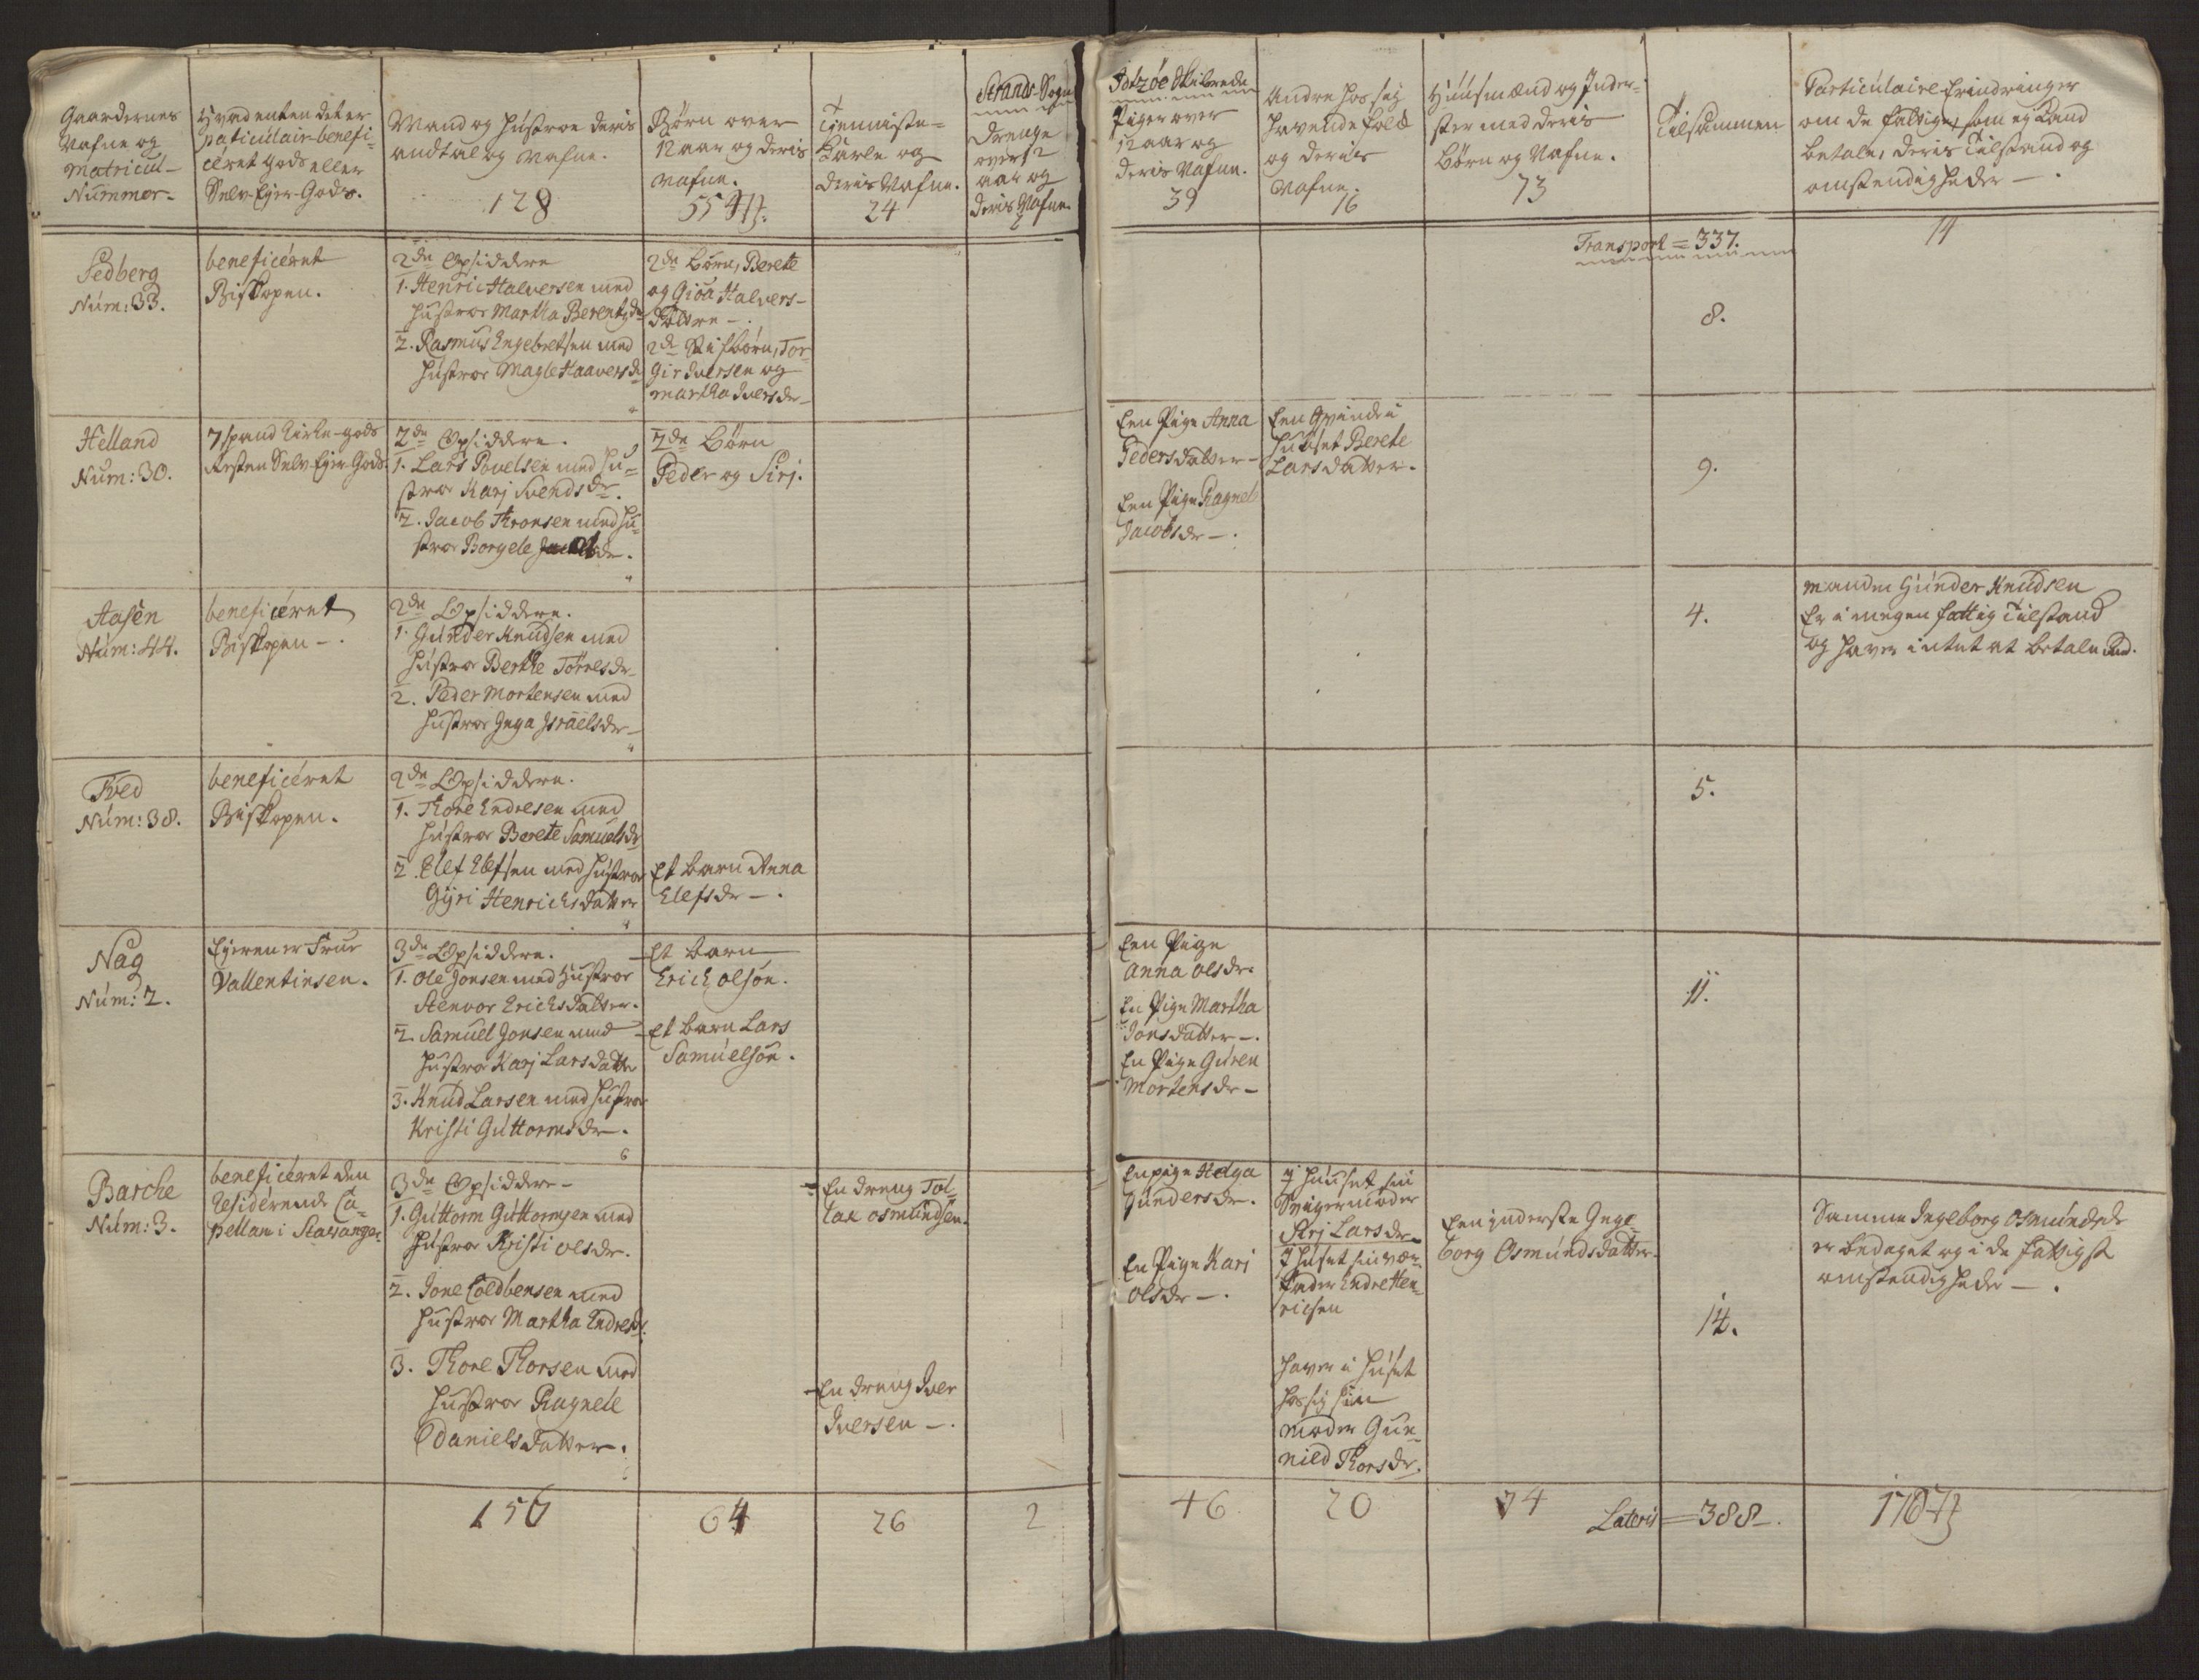 Strands Sogn
Idzöe Skibrede
Gaardernes
Nafne og
Matricul-
Nummer-
Hvad enten det er
paticulair-benefi-
ceret gods eller
Selv-Ejer-Gods.
Mand og Hustroe deris
andtal og Nafne.
128
Børn over
12 aar og deris
Nafne.
55
Tienniste-
Karle og
deris Nafne.
24
Drenge
over 12
aar og
deris Nafne.
2
Piger over
12 aar og
deris Nafne.
39
Andre hos sig
havende folk
og deris
Nafne.
16
Huusmænd og Inder-
ster med deris
Børn og Nafne.
73
Tilsammen
Particulaire Erindringer
om de fattige, som ej Kand
betale, deris Tilstand og
omstendigheder -.
Transport = 337.
Sedberg
Num: 33.
beneficéret
Biskopen.
2de Opsiddere
1. Henric Halversen med
Hustroe Martha Berentzdr
2. Rasmus Engebretsen med
Hustroe Magle Haaversdr
2de Børn, Berete
og Gioa Halvers-
døttre -.
2de Stifbørn, Tor-
Gir Iversen og
Martha Iversdr-
8.
Helland
Num: 30.
7 spand Kirke-gods
Resten Selv-Ejer-Gods.
2de Opsiddere.
1. Lars Povelsen med Hu-
stroe Karj Svendsdr.
2. Jacob Thronsen med Hu-
stroe Borgele Jacobsdr.
2de Børn
Peder og Sirj.
Een Pige Anna
Pedersdatter-
Een Pige Ragnele
Jacobsdr-.
Een Qvinde i
Huuset Berete
Larsdatter.
9.
Aasen
Num: 44.
beneficéret
Biskopen -.
2de Opsiddere.
1. Gunder Knudsen med
Hustroe Berthe Torresdr-
2. Peder Mortensen med
Hustroe Inga Israelsdr-
4.
Manden Gunder Knudsen
Er i megen fattig Tilstand
og haver intet at betale med.
Tved
Num: 38.
beneficéret
Biskopen.
2de Opsiddere.
1. Thore Endresen med
Hustroe Berete Samuelsdr
2. Elef Elefsen med Hustroe
Gyri Henrichsdatter
Et barn Anna
Elefsdr-.
5.
Nag
Num: 2.
Ejeren er Frue
Vallentinsen.
3de Opsiddere.
1. Ole Jonsen med Hustroe
Stenvor Erichsdatter.
2. Samuel Jonsen med
Hustroe Karj Larsdatter
3. Knud Larsen med Hustroe
Kristi Guttormsdr-.
6
Et barn
Erich Olsön.
Et barn Lars
Samuelsön.
Een Pige
Anna Olsdr.
En Pige Martha
Jonsdatter-.
En Pige Guren
Mortensdr-
11.
Barche
Num: 3.
beneficéret den
Residerende Ca-
pellan i Stavanger.
3de Opsiddere-
1. Guttorm Guttormsen med
Hustroe Kristi Olsdr.
2. Jone Coldbensen med
Hustroe Martha Endresdr.
3. Thore Thorsen med
Hustroe Ragnele
Danielsdatter.
En dreng Tol-
lak Osmundsen.
En dreng Iver
Iversen -.
En pige Helga
Gundersdr.
En Pige Kari
Olsdr-.
J Huuset sin
Svigermoder
Sirj Larsdr-
J Huset sin Vær-
fader Endre Hen-
ricsen
Haver i Huset
hos sig sin
Moder Gun-
nild Thorsdr.
Een Inderste Inge-
borg Osmundsdatter.
14.
Samme Ingeborg Osmundsdr
er bedaget og i de fattigste
omstendigheder -.
150
64
26
2
46
20
74
Lateris = 388-.